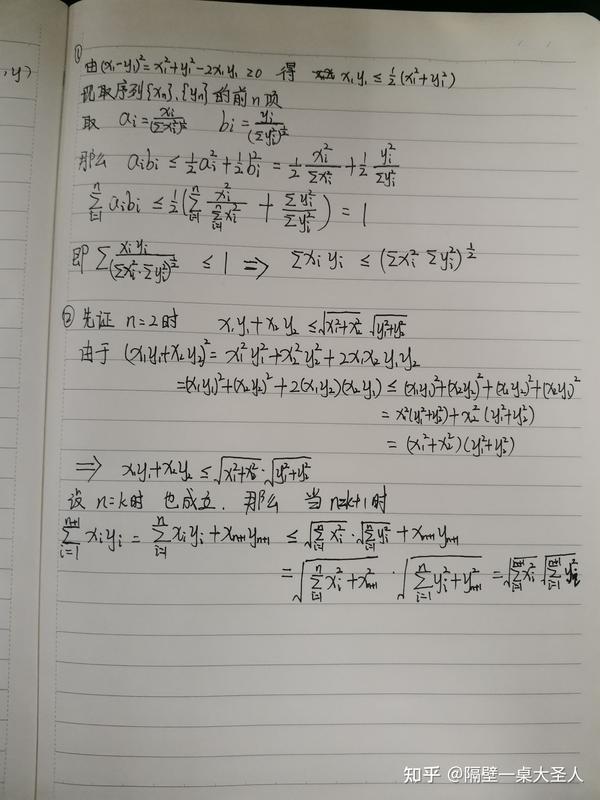 , y)
①
由(x₁-y₁)²=x₁²+y₁²-2x₁y₁ ≥0 得 x₁y₁ ≤ ½(x₁²+y₁²)
现取序列{xn},{yn}的前n项
取 ai = xi/(Σxi²)^½ bi = yi/(Σyi²)^½
那么 aibi ≤ ½ai²+½bi² = ½ xi²/Σxi² + ½ yi²/Σyi²
Σ_{i=1}^{n} aibi ≤ ½(Σ_{i=1}^{n} xi²/Σ_{i=1}^{n} xi² + Σyi²/Σyi²) = 1
即 Σ xiyi/(Σxi²·Σyi²)^½ ≤ 1 ⟹ Σxiyi ≤ (Σxi² Σyi²)^½
② 先证 n=2时 x₁y₁+x₂y₂ ≤ √(x₁²+x₂²) √(y₁²+y₂²)
由于 (x₁y₁+x₂y₂)² = x₁²y₁²+x₂²y₂²+2x₁x₂y₁y₂
=(x₁y₁)²+(x₂y₂)²+2(x₁y₂)(x₂y₁) ≤ (x₁y₁)²+(x₂y₂)²+(x₁y₂)²+(x₂y₁)²
= x₁²(y₁²+y₂²)+x₂²(y₁²+y₂²)
= (x₁²+x₂²)(y₁²+y₂²)
⟹ x₁y₁+x₂y₂ ≤ √(x₁²+x₂²)·√(y₁²+y₂²)
设 n=k时 也成立. 那么 当n=k+1时
Σ_{i=1}^{n+1} xiyi = Σ_{i=1}^{n} xiyi + xn+1yn+1 ≤ √(Σ_{i=1}^{n} xi²)·√(Σ_{i=1}^{n} yi²) + xn+1yn+1
= √(Σ_{i=1}^{n} xi²+xn+1²) · √(Σ_{i=1}^{n} yi²+yn+1²) = √(Σ_{i=1}^{n+1} xi²) √(Σ_{i=1}^{n+1} yi²)
知乎 @隔壁一桌大圣人